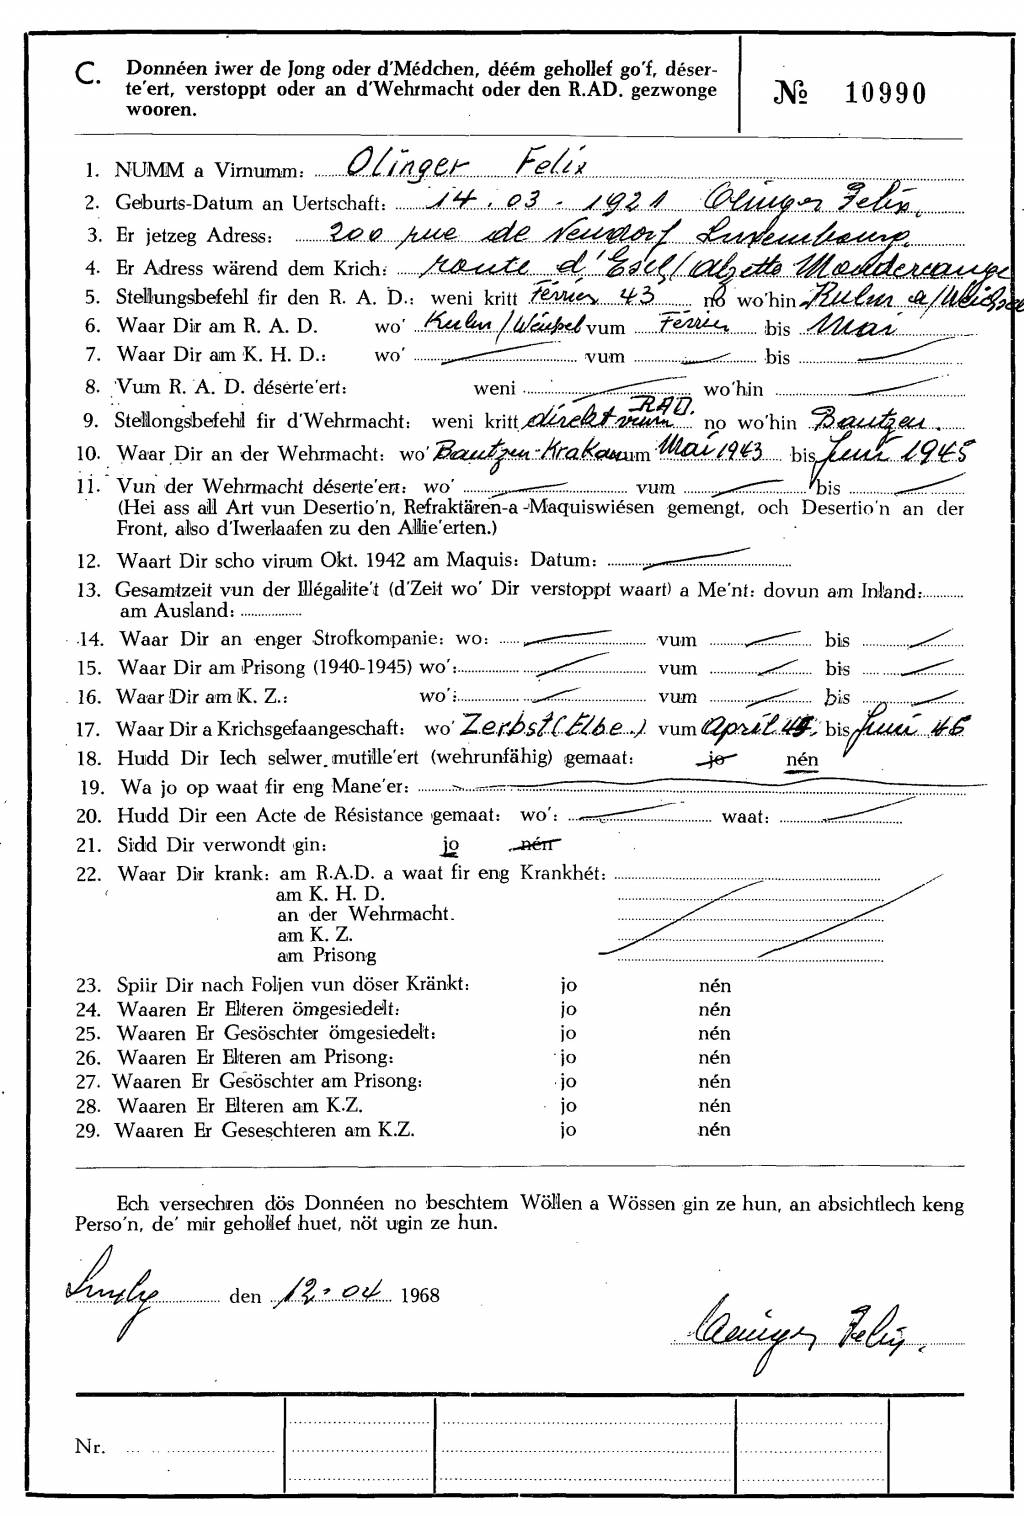 C. Donnéen iwer de Jong oder d'Médchen, déém gehollef go'f, déser-
te'ert, verstoppt oder an d'Wehrmacht oder den R.AD. gezwonge
wooren.
№ 10990
1. NUMM a Virnumm: Olinger Felix
2. Geburts-Datum an Uertschaft: 14.03.1921 Olinger Felix.
3. Er jetzeg Adress: 200 rue de Neudorf Luxembourg
4. Er Adress wärend dem Krich: route d'Esch/Alzette Mondercange
5. Stellungsbefehl fir den R. A. D.: weni kritt Février 43 no wo'hin Kulm a/Weichsel
6. Waar Dir am R. A. D. wo' Kulm/Weichsel vum Février bis Mai
7. Waar Dir am K. H. D.: wo' vum bis
8. Vum R. A. D. déserte'ert: weni wo'hin
9. Stellongsbefehl fir d'Wehrmacht: weni kritt direkt vum RAD. no wo'hin Bautzen.
10. Waar Dir an der Wehrmacht: wo' Bautzen-Krakau vum Mai 1943 bis Juni 1945
11. Vun der Wehrmacht déserte'ert: wo' vum bis
(Hei ass all Art vun Desertio'n, Refraktären-a-Maquiswiésen gemengt, och Desertio'n an der
Front, also d'Iwerlaafen zu den Allie'erten.)
12. Waart Dir scho virum Okt. 1942 am Maquis: Datum:
13. Gesamtzeit vun der Illégalite't (d'Zeit wo' Dir verstoppt waart) a Me'nt: dovun am Inland:
am Ausland:
14. Waar Dir an enger Strofkompanie: wo: vum bis
15. Waar Dir am Prisong (1940-1945) wo': vum bis
16. Waar Dir am K. Z.: wo': vum bis
17. Waar Dir a Krichsgefaangeschaft: wo' Zerbst (Elbe.) vum April 45 bis Juni 45
18. Hudd Dir Iech selwer mutille'ert (wehrunfähig) gemaat: jo nén
19. Wa jo op waat fir eng Mane'er:
20. Hudd Dir een Acte de Résistance gemaat: wo': waat:
21. Sidd Dir verwondt gin: jo nén
22. Waar Dir krank: am R.A.D. a waat fir eng Krankhét:
am K. H. D.
an der Wehrmacht.
am K. Z.
am Prisong
23. Spiir Dir nach Foljen vun döser Kränkt: jo nén
24. Waaren Er Elteren ömgesiedelt: jo nén
25. Waaren Er Gesöschter ömgesiedelt: jo nén
26. Waaren Er Elteren am Prisong: jo nén
27. Waaren Er Gesöschter am Prisong: jo nén
28. Waaren Er Elteren am K.Z. jo nén
29. Waaren Er Geseschteren am K.Z. jo nén
Ech versechren dös Donnéen no beschtem Wöllen a Wössen gin ze hun, an absichtlech keng
Perso'n, de' mir gehollef huet, nöt ugin ze hun.
den 12.04 1968
Olinger Felix.
Nr.